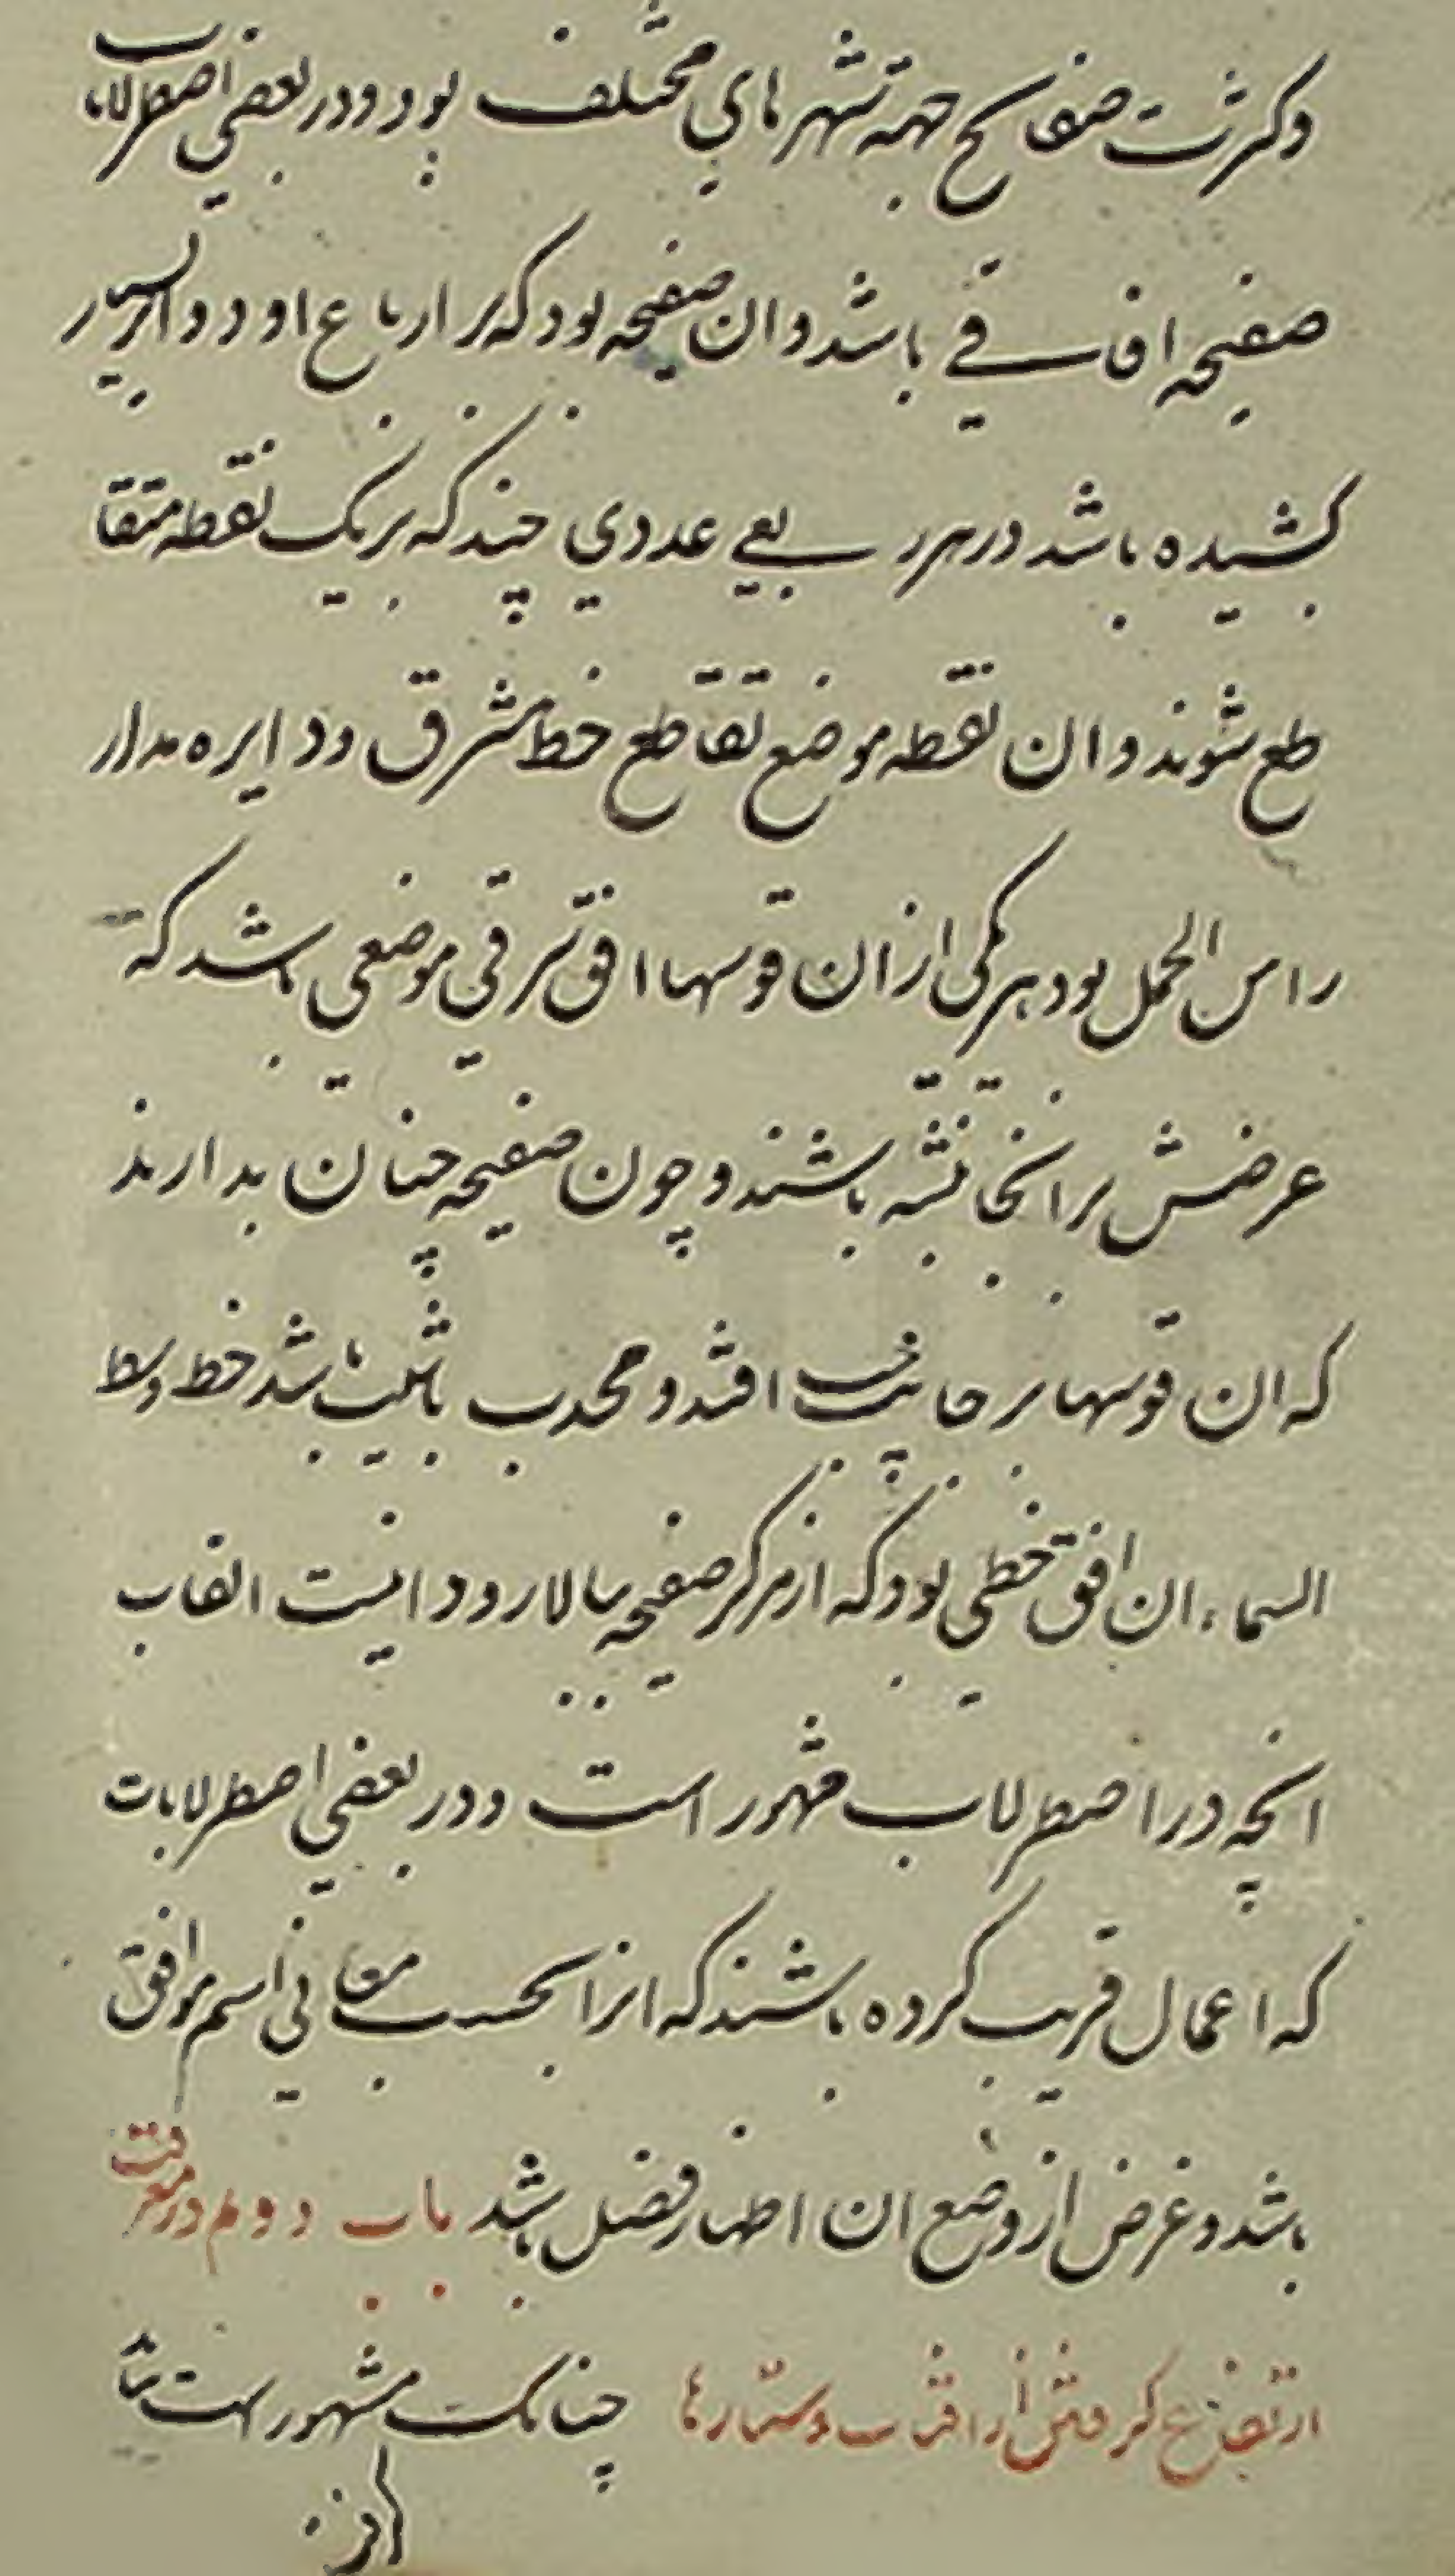 وکثرت صفایح جهة شهرهای مختلف بود ودر بعضی اصطرلاب
صفیحه افاقی باشد وان صفیحه بود که بر ارباع او دوایر بسیار
کشیده باشد در هر ربعی عددی چند که بر یک نقطه متقا
طع شوند وان نقطه موضع تقاطع خط مشرق ودایره مدار
راس الحمل بود هر یکی ازان قوسها افق شرقی موضعی باشد که
عرضش برانجا نبشته باشند و چون صفیحه چنان بدارند
که ان قوسها بر جانب افتد و محدب باشد خط وسط
السماء ان افق خطی بود که از مرکز صفیحه ببالا رود اینست القاب
انچه در اصطرلاب مشهور است ودر بعضی اصطرلابات
که اعمال قریب کرده باشند که انرا بحسب معانی اسم موافق
باشد وغرض از وضع ان اظهار فضل باشد باب دوم در معرفت
ارتفاع کرفتن از افتاب وستارها چنانک مشهور است